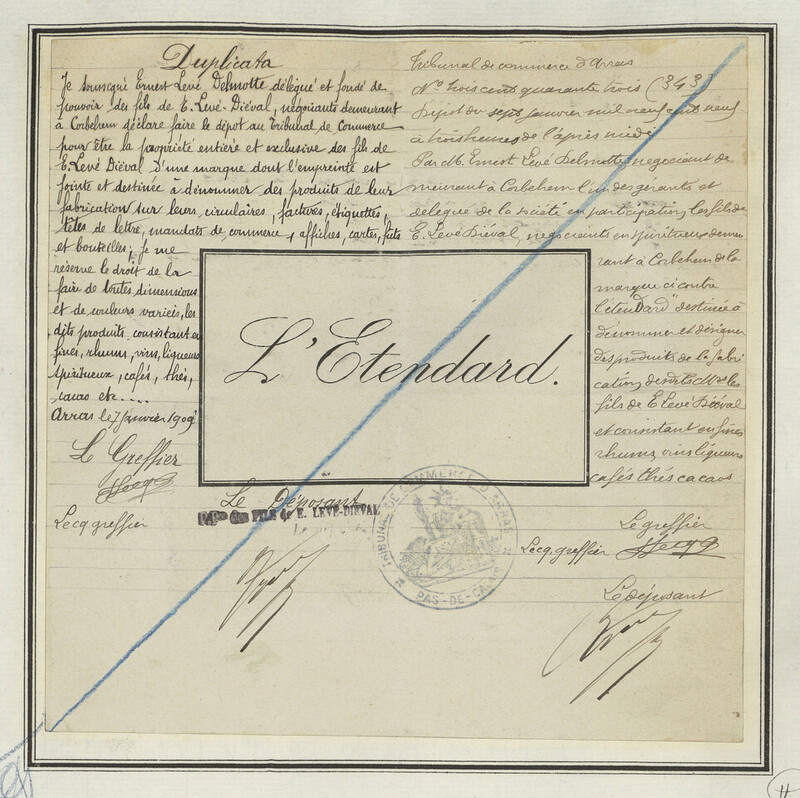 Duplicata
Je soussigné Ernest Levé Delmotte délégué et fondé de
pouvoir des fils de E. Levé-Diéval, négociants demeurant
à Corbehem déclare faire le dépôt au Tribunal de Commerce
pour être la propriété entière et exclusive des fils de
E. Levé Diéval d'une marque dont l'empreinte est
jointe et destinée à dénommer des produits de leur
fabrication sur leurs circulaires, factures, étiquettes,
têtes de lettre, mandats de commerce, affiches, cartes, fûts
et bouteilles; je me
réserve le droit de la
faire de toutes dimensions
et de couleurs variées, les
dits produits consistant en
fines, rhums, vins, liqueurs
spiritueux, cafés, thés,
cacao etc....
Arras le 7 Janvier 1909
Le Greffier
Lecq greffier
Le Déposant
FILS de E. LEVÉ-DIÉVAL
Tribunal de commerce d'Arras
No trois cent quarante trois (343)
Dépôt du sept janvier mil neuf cent neuf
à trois heures de l'après midi
Par M. Ernest Levé Delmotte negociant de
meurant à Corbehem l'un des gérants et
délégué de la société en participation, les fils de
E. Levé Diéval, négociants en spiritueux demeu
rant à Corbehem de la
marque ci contre
"L'étendard" destinée à
dénommer et désigner
des produits de la fabri
cation desdits Mrs les
fils de E Levé Diéval
et consistant en fines
rhums vins liqueurs
cafés thés cacaos
Le greffier
Lecq, greffier
Le déposant
L'Etendard.
TRIBUNAL DE COMMERCE D'ARRAS
PAS-DE-CALAIS